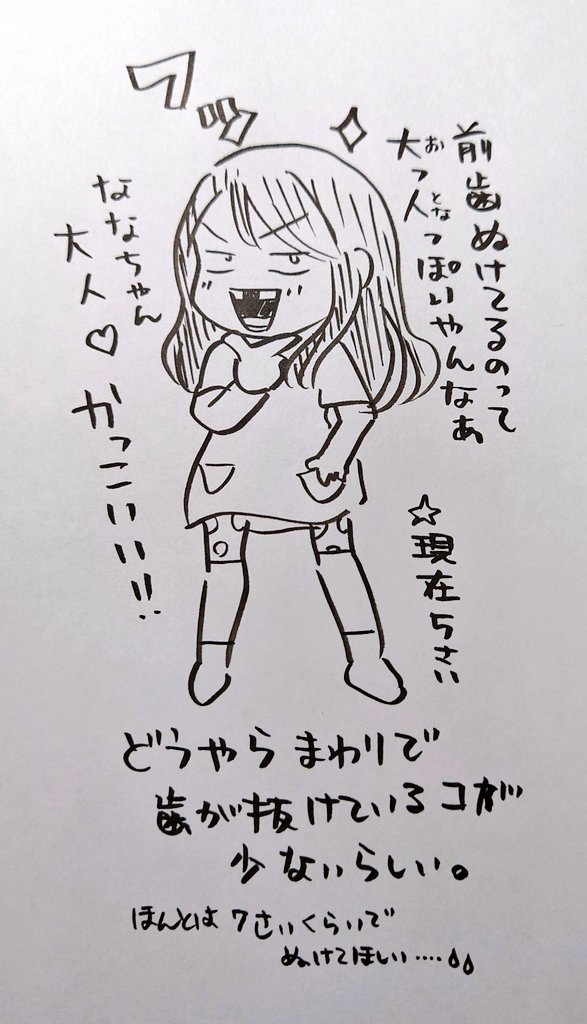 フッ
前歯ぬけてるのって
大人っぽいやんなぁ
おとな
ななちゃん
大人♡
かっこいい!!
☆現在5さい
どうやらまわりで
歯が抜けているコが
少ないらしい。
ほんとは7さいくらいで
ぬけてほしい……